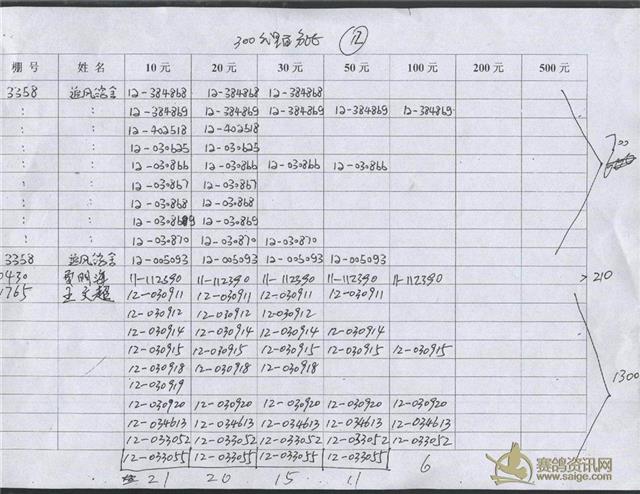 300公里
12
棚号 姓名 10元 20元 30元 50元 100元 200元 500元
3358 12-384868 12-384868 12-384868
: : 12-384869 12-384869 12-384869 12-384869 12-384869
: : 12-402518 12-402518
: : 12-030625 12-030625
: : 12-030866 12-030866 12-030866 12-030866
: : 12-030867 12-030867
: : 12-030868 12-030868
: : 12-030869 12-030869
: : 12-030870 12-030870 12-030870
3358 12-005093 12-005093 12-005093 12-005093
0430 11-112390 11-112390 11-112390 11-112390 11-112390 > 210
1765 王文超 12-030911 12-030911 12-030911 12-030911
12-030912 12-030912 12-030912
12-030914 12-030914 12-030914 12-030914
12-030915 12-030915 12-030915 12-030915 12-030915
12-030918 12-030918 12-030918
12-030919
1300
12-030920 12-030920 12-030920 12-030920 12-030920
12-034613 12-034613 12-034613 12-034613 12-034613
12-033052 12-033052 12-033052 12-033052 12-033052
12-033055 12-033055 12-033055 12-033055
21 20 15 11 6
赛鸽资讯网
www.saige.com